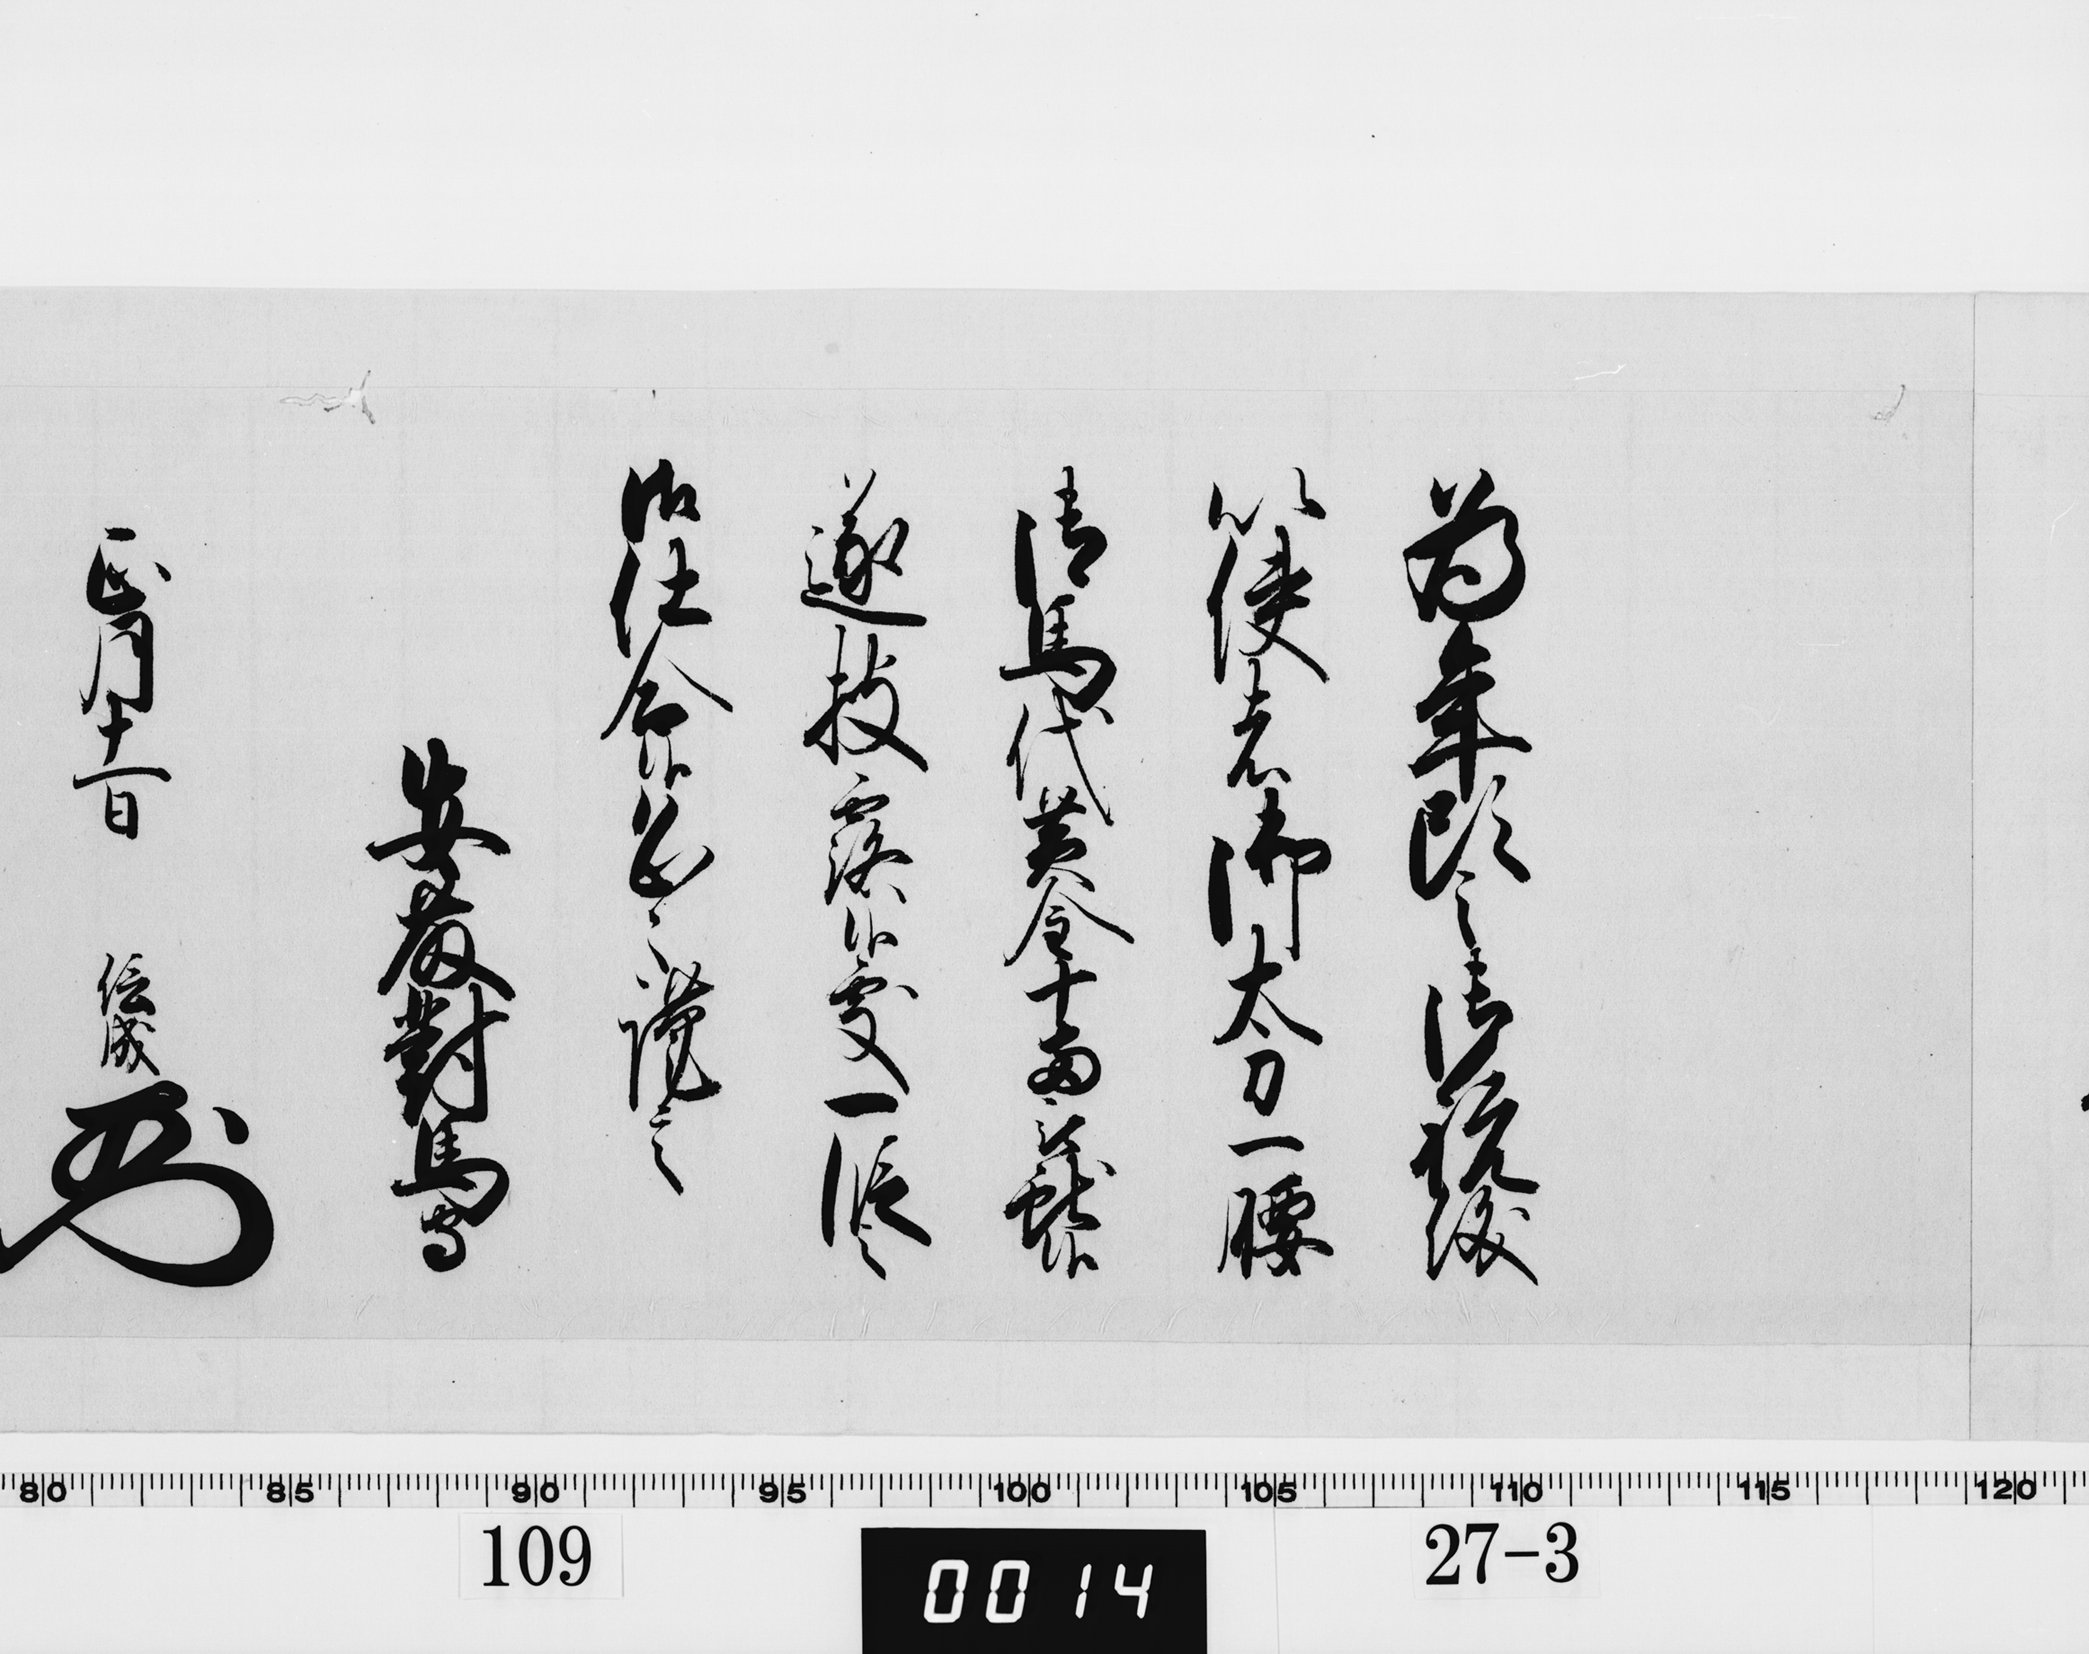 為年頭之御祝儀
以使者御太刀一腰
御馬代黄金十両献候
遂披露候處一段之
御仕合候恐々謹言
安藤對馬守
正月十一日 信成
80 85 90 95 100 105 110 115 120
109 0014 27-3